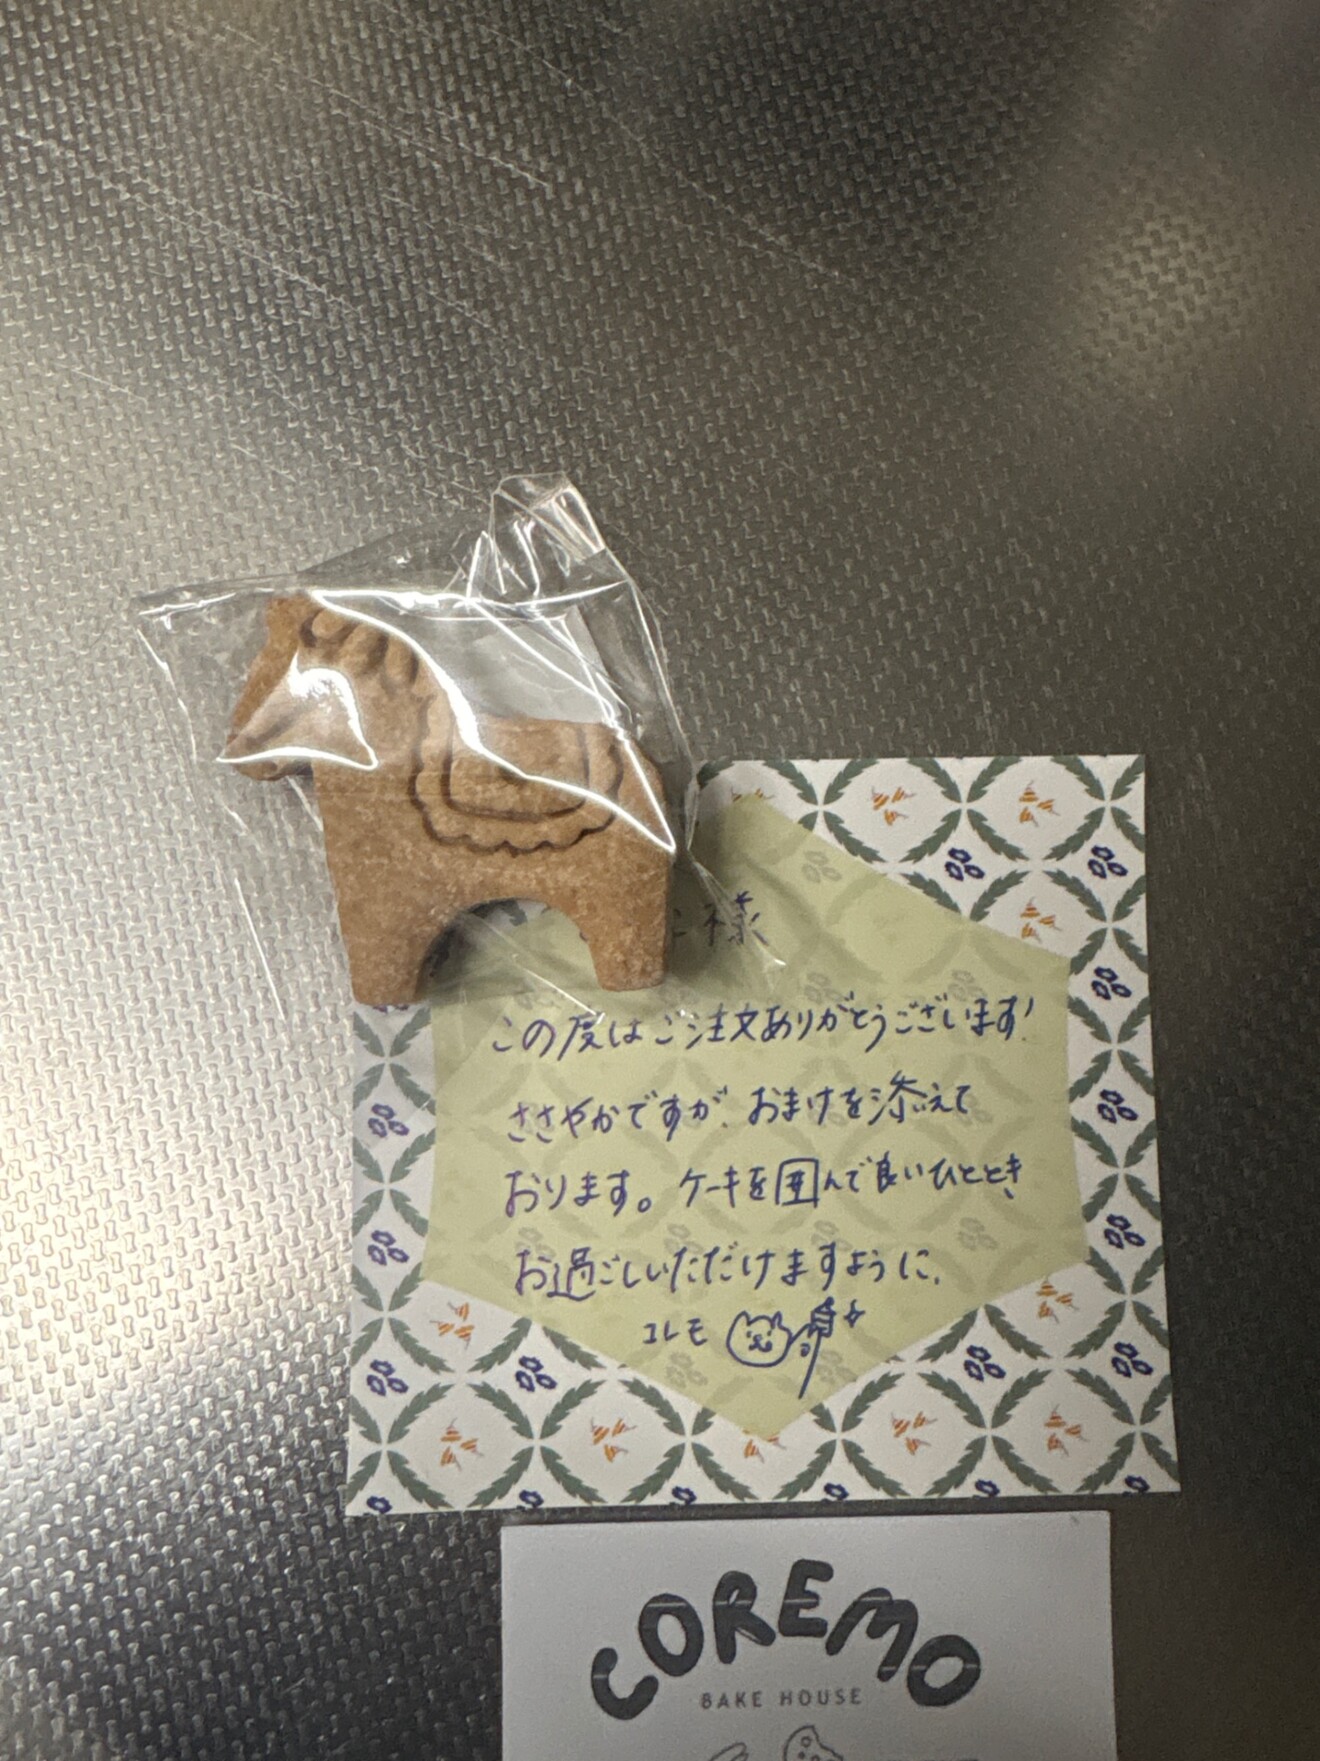 様
この度はご注文ありがとうございます!
ささやかですが、おまけを添えて
おります。ケーキを囲んで良いひととき
お過ごしいただけますように。
コレモ
COREMO
BAKE HOUSE